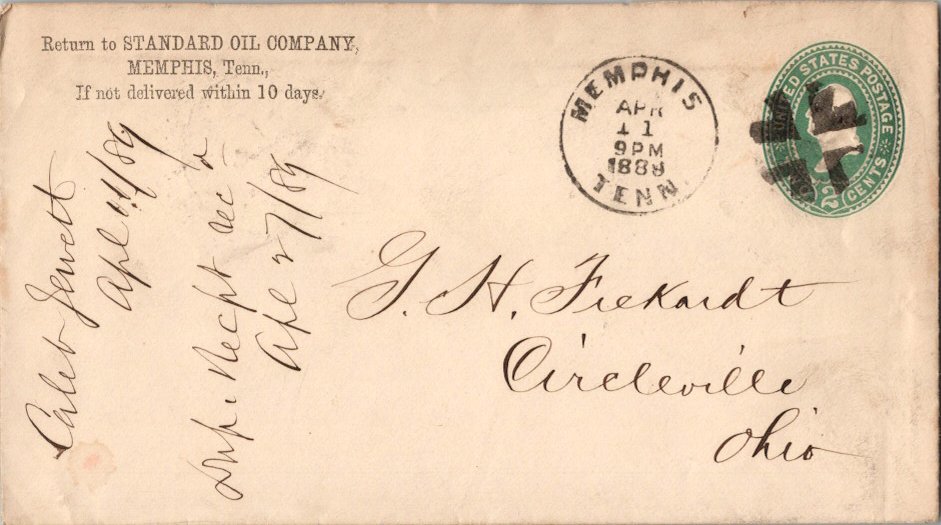 Return to STANDARD OIL COMPANY,
MEMPHIS, Tenn.,
If not delivered within 10 days.
MEMPHIS
APR
11
9PM
1889
TENN.
UNITED STATES POSTAGE
2 CENTS
G. H. Fickardt
Circleville
Ohio
Caleb Jewett
Apl 11/89
Dup. Recpt
Apl 27/89